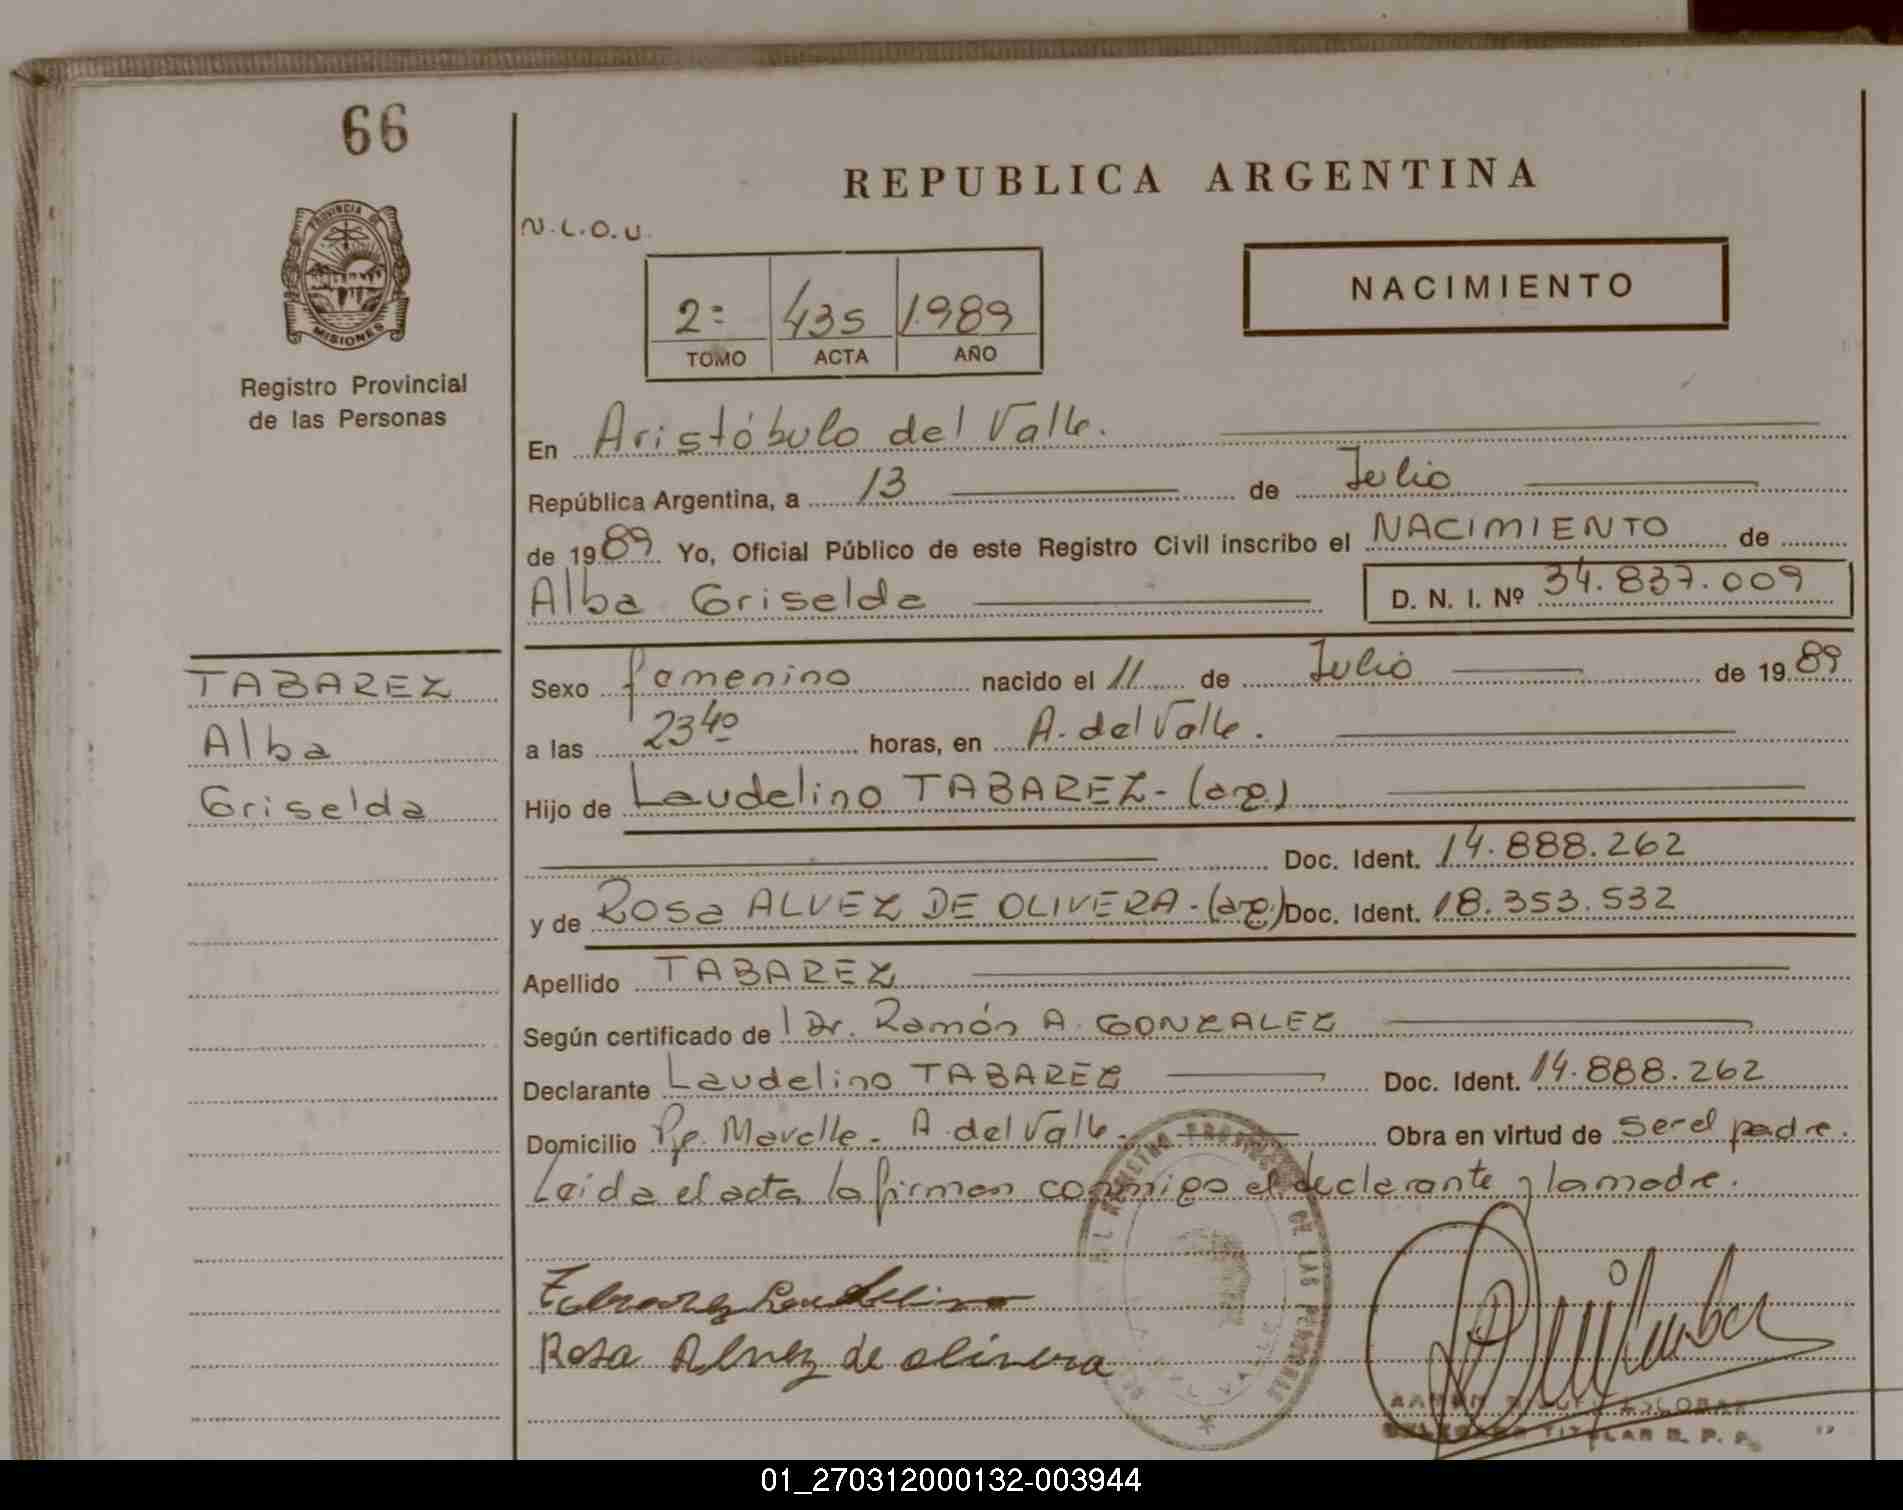 66
REPUBLICA ARGENTINA
N.L.O.U.
PROVINCIA DE
MISIONES
Registro Provincial
de las Personas
NACIMIENTO
2= 435 1989
TOMO ACTA AÑO
En Aristóbulo del Valle.
República Argentina, a 13 de Julio
de 1989. Yo, Oficial Público de este Registro Civil inscribo el NACIMIENTO de
Alba Griselda D. N. I. Nº 34.837.009
TABAREZ
Alba
Griselda
Sexo femenino nacido el 11 de Julio de 1989
a las 23 40 horas, en A. del Valle.
Hijo de Laudelino TABAREZ - (arg.)
Doc. Ident. 14.888.262
y de Rosa ALVEZ DE OLIVERA - (arg.) Doc. Ident. 18.353.532
Apellido TABAREZ
Según certificado de Dr. Ramón A. GONZALEZ
Declarante Laudelino TABAREZ Doc. Ident. 14.888.262
Domicilio A. del Valle. Obra en virtud de ser el padre.
Leida el acta la firman conmigo el declarante y la madre.
Tabarez Laudelino
Rosa Alvez de olivera
ESCOBAR
TITULAR R. P. P.
01_270312000132-003944